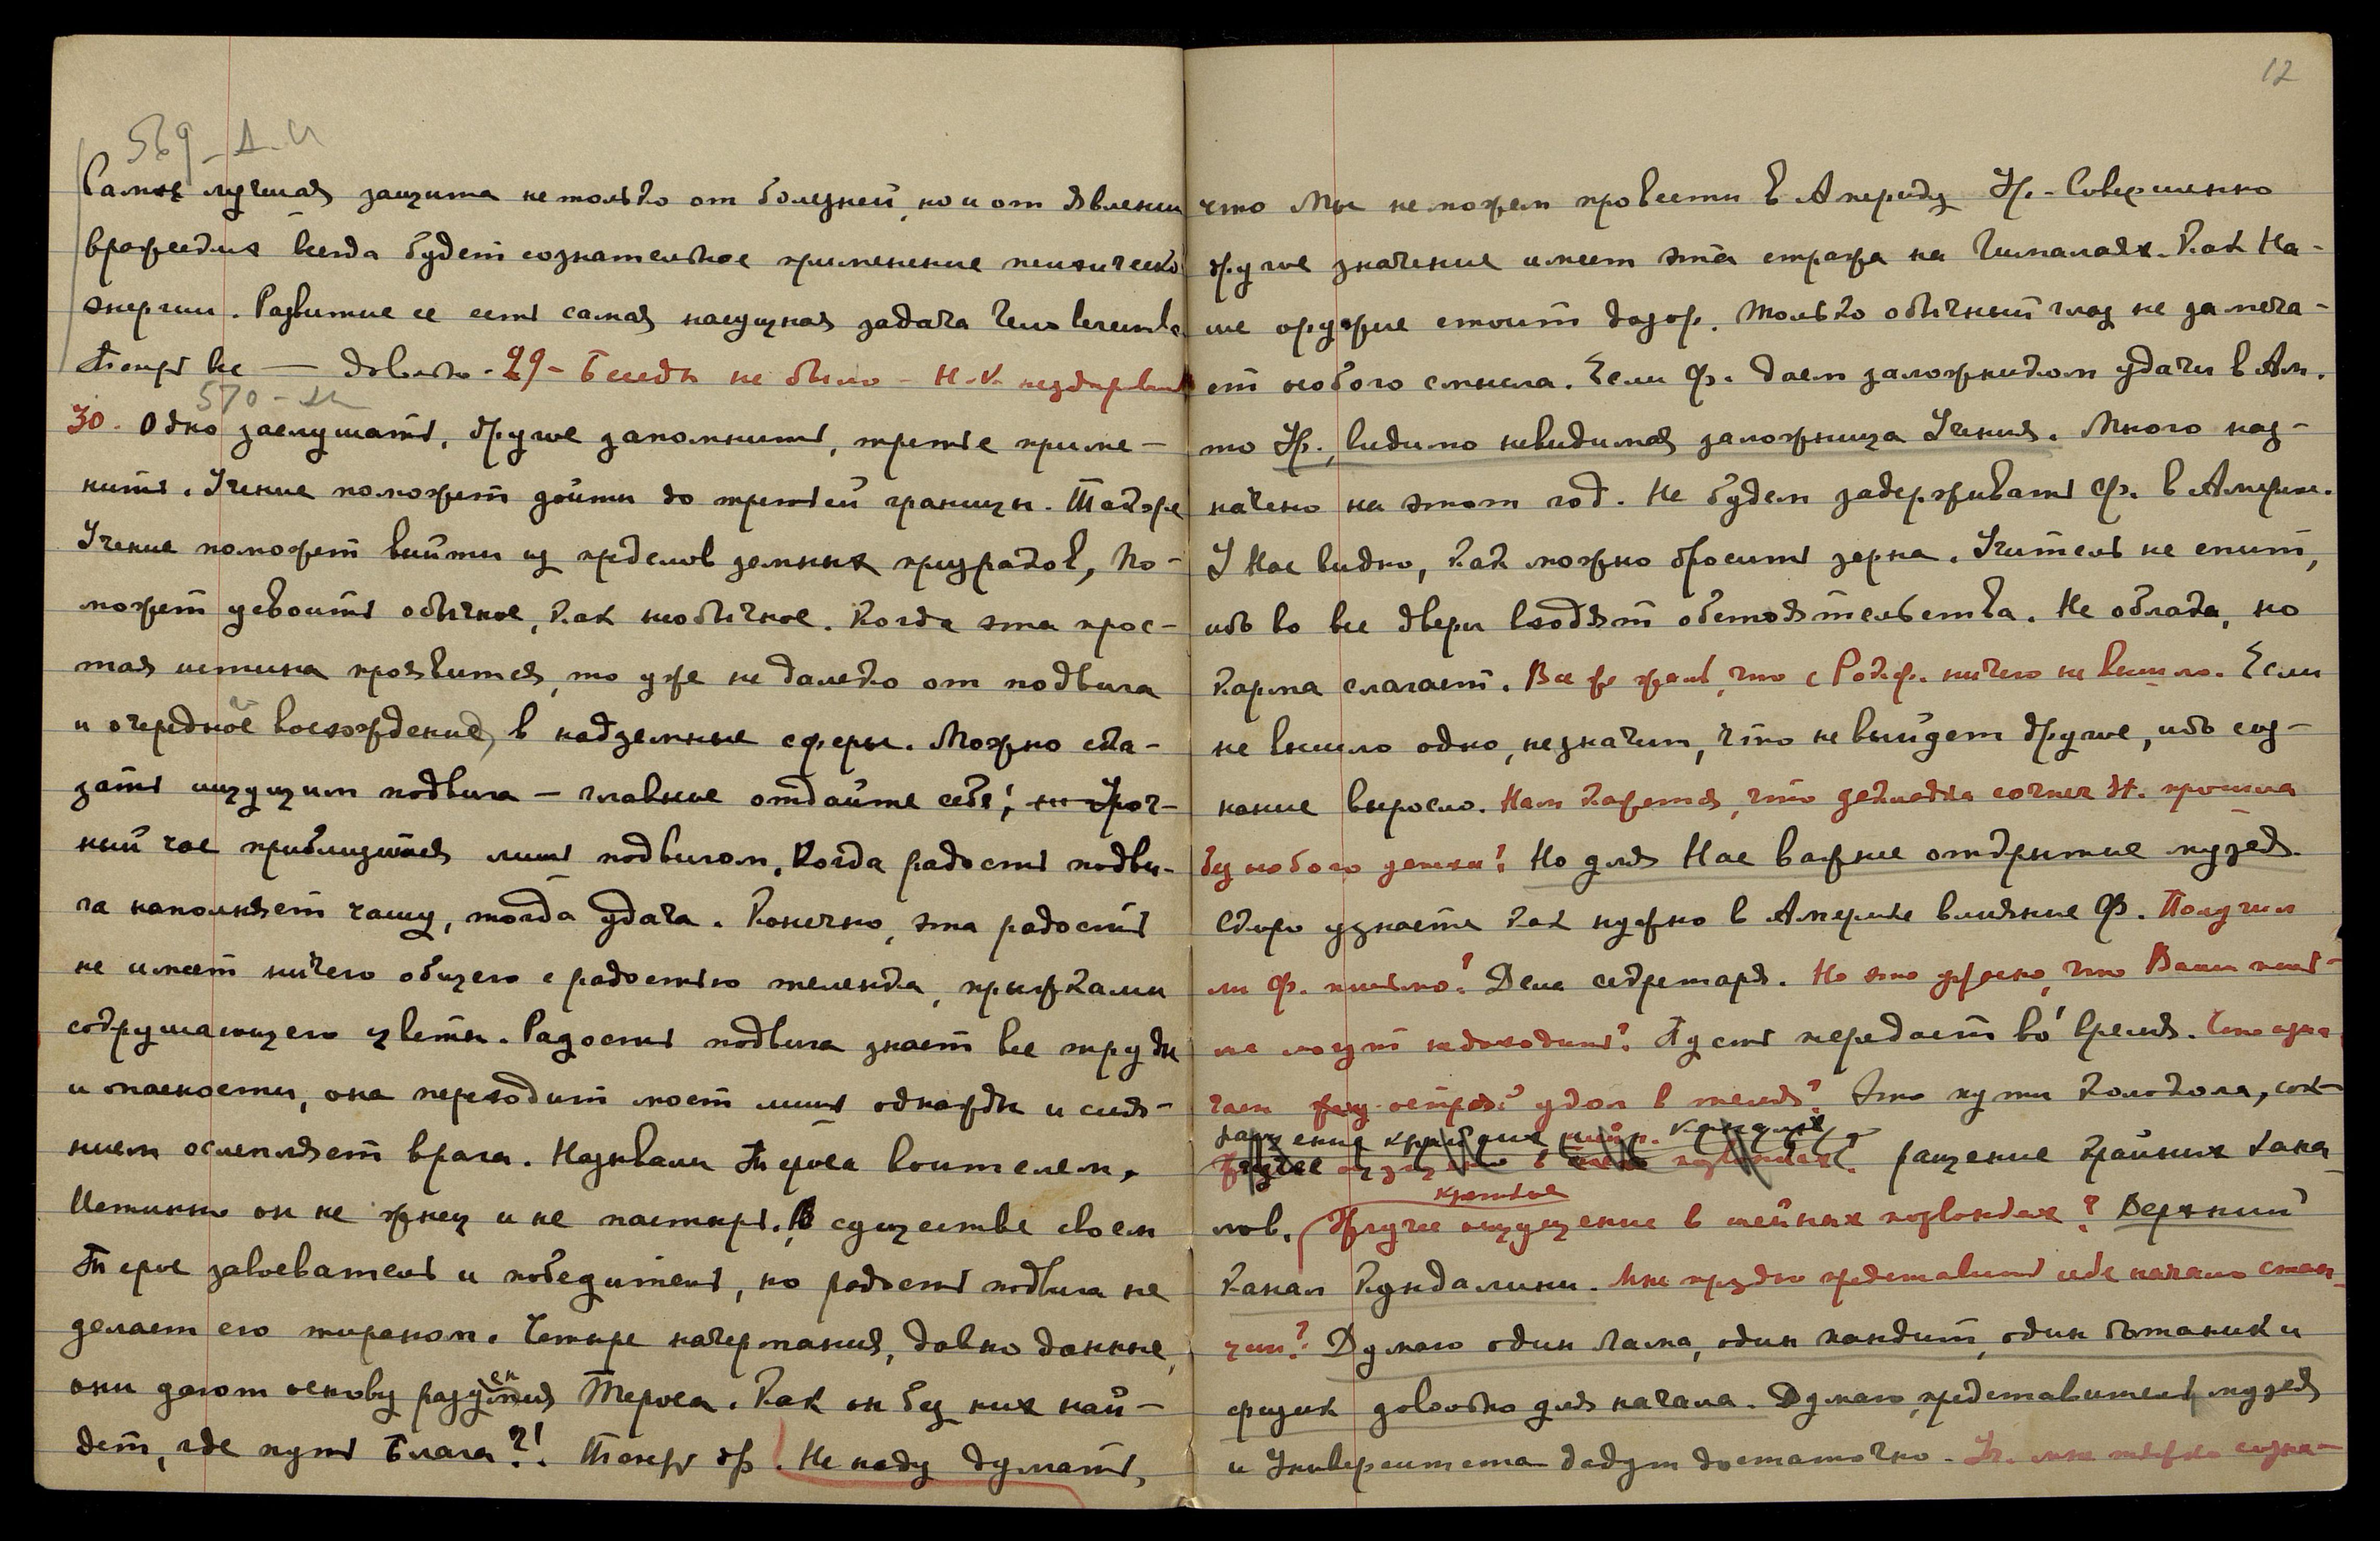 569 - А.И
Самая лучшая защита не только от болезней, но и от явлений
враждебных всегда будет сознательное применение психической
энергии. Развитие ее есть самая насущная задача человечества.
Теперь все — довольно. 29 - Беседы не было - Н.К. нездоровится
570 -
30. Одно заслушать, другое запомнить, третье приме-
нить. Учение поможет дойти до третьей границы. Также
Учение поможет выйти из пределов земных призраков, По-
может усвоить обычное, как необычное. Когда эта прос-
тая истина проявится, то уже не далеко от подвига
и очередное восхождение в надземные сферы. Можно ска-
зать ищущим подвига — главное отдайте себя! Уроч-
ный час приблизится лишь подвигом. Когда радость подви-
га наполняет чашу, тогда удача. Конечно, эта радость
не имеет ничего общего с радостью теленка, прыжками
сокрушающего цветы. Радость подвига знает все труды
и опасности, она переходит мост лишь однажды и сия-
нием ослепляет врага. Называли Тероса воителем.
Истинно он не жнец и не пастырь. В существе своем
Терос завоеватель и победитель, но радость подвига не
делает его тираном. Четыре начертания, давно данные,
они дают основу разумения Тероса. Как он без них най-
дет, где путь Блага?!. Теперь др. Не надо думать,
12
что Мы не можем провести в Америку Ур. - Совершенно
другое значение имеет эта стража на Гималаях. Как На-
ше оружие стоит дозор. Только обычный глаз не замеча-
ет особого смысла. Если Ф. даем заложником удачи в Ам.
то Ур., видимо невидимая заложница Учения. Много наз-
начено на этот год. Не будем задерживать Ф. в Америке.
У Нас видно, как можно бросить зерна. Учитель не спит,
ибо во все двери входят обстоятельства. Не облака, но
карма слагает. Все же жаль, что с Рокф. ничего не вышло. Если
не вышло одно, не значит, что не выйдет другое, ибо соз-
нание выросло. Нам кажется, что закладка прошла
без особого Но для Нас важнее открытие музея.
Скоро узнаете как нужно в Америке влияние Ф. Получил
ли Ф. письмо? Дела секретаря. Но это ужасно, что Ваши пись-
ма могут не доходить? Пусть передает во время. Что озна-
чает острый укол в темя? Это пути колокола, сок-
ращение крайних каналов
ращение крайних кана-
лов. Жгучее крепкое ощущение в шейных позвонках? Верхний
канал Кундалини. Мне трудно представить себе начало стан-
ции? Думаю один лама, один пандит, один ботаник и
физик довольно для начала. Думаю, представитель музея
и Университета дадут достаточно.